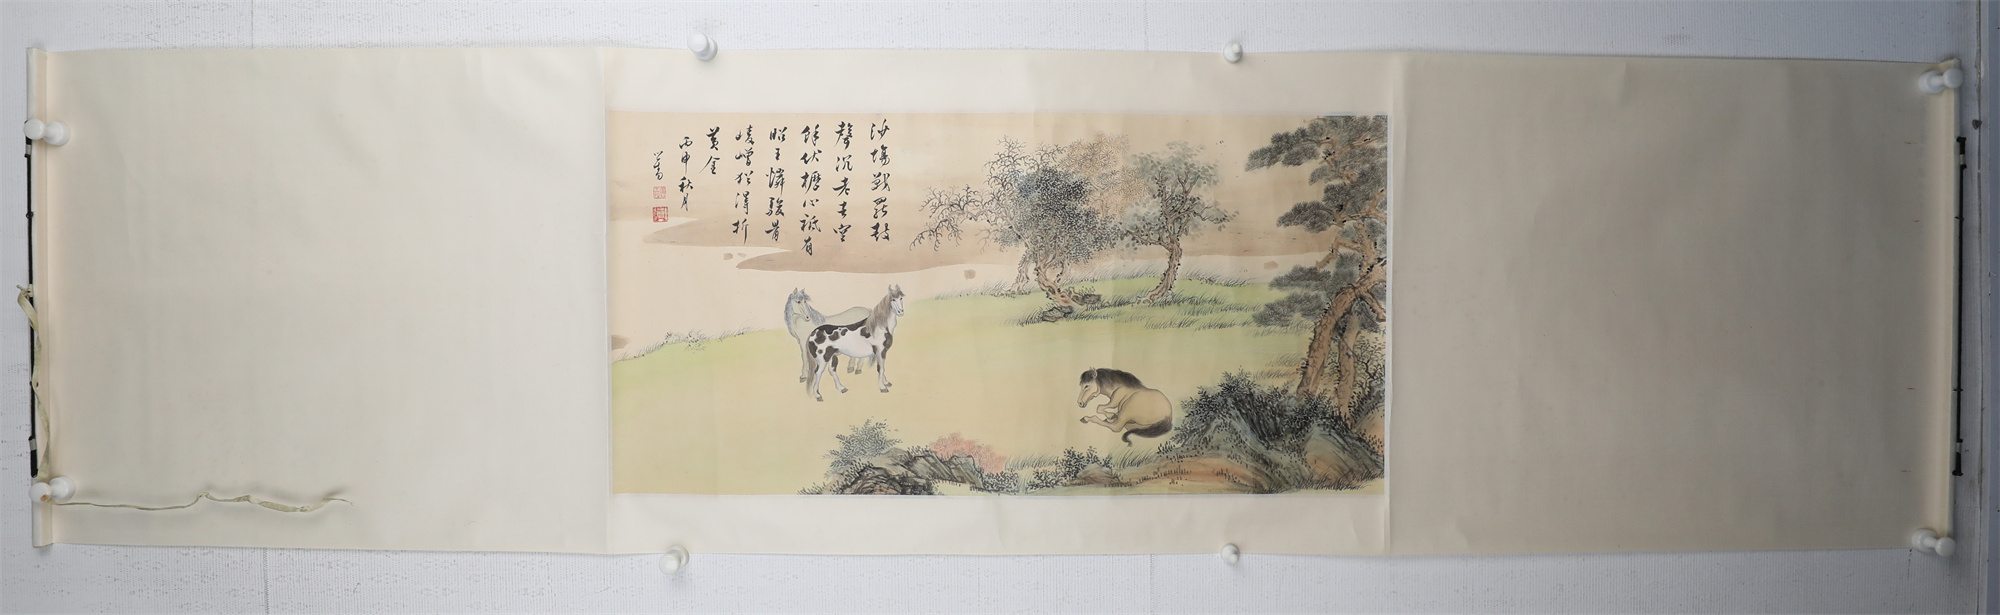 沙場戰罷鼓
聲沉老去空
餘伏櫪心祗有
昭王憐駿骨
崚嶒猶得折
黃金
丙申秋月